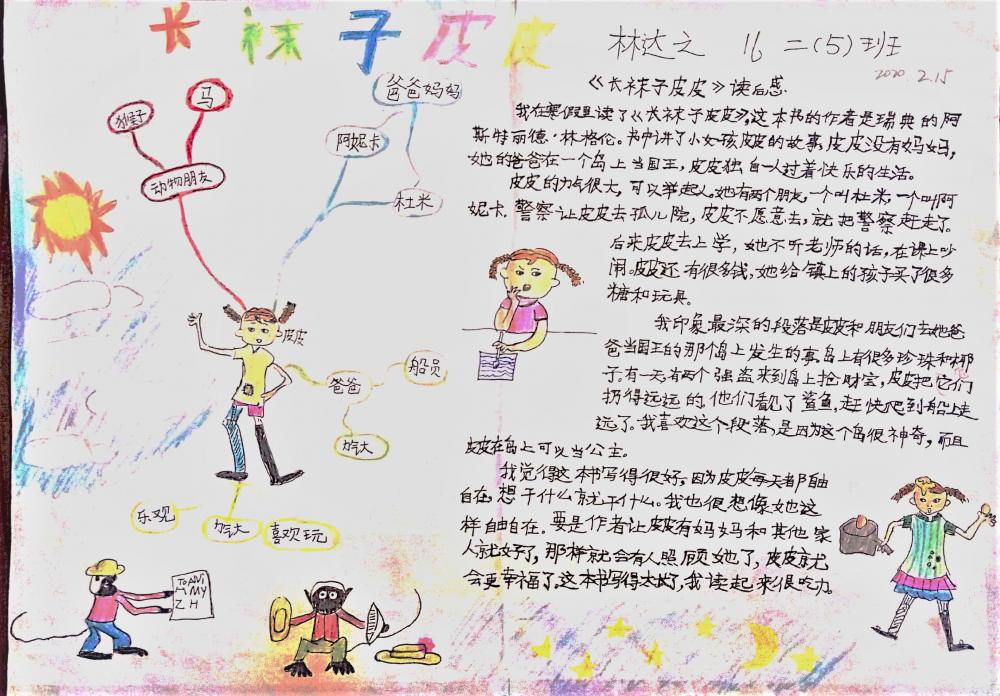 长袜子皮皮
林达之 16 二(5)班
2020 2.15
《长袜子皮皮》读后感
我在寒假里读了《长袜子皮皮》,这本书的作者是瑞典的阿
斯特丽德·林格伦。书中讲了小女孩皮皮的故事,皮皮没有妈妈,
她的爸爸在一个岛上当国王,皮皮独自一人过着快乐的生活。
皮皮的力气很大,可以举起人。她有两个朋友,一个叫杜米,一个叫阿
妮卡。警察让皮皮去孤儿院,皮皮不愿意去,就把警察赶走了。
后来皮皮去上学,她不听老师的话,在课上吵
闹。皮皮还有很多钱,她给镇上的孩子买了很多
糖和玩具。
我印象最深的段落是皮皮和朋友们去她爸
爸当国王的那个岛上发生的事。岛上有很多珍珠和椰
子。有一天,有两个强盗来到岛上抢财宝,皮皮把它们
扔得远远的。他们看见了鲨鱼,赶快爬到船上走
远了。我喜欢这个段落,是因为这个岛很神奇,而且
皮皮在岛上可以当公主。
我觉得这本书写得很好。因为皮皮每天都自由
自在。想干什么就干什么。我也很想像她这
样自由自在。要是作者让皮皮有妈妈和其他家
人就好了,那样就会有人照顾她了,皮皮就
会更幸福了。这本书写得太好了,我读起来很吃力。
猴子
马
动物朋友
爸爸妈妈
阿妮卡
杜米
皮皮
爸爸
船员
力气大
乐观
力气大
喜欢玩
MY
ZH